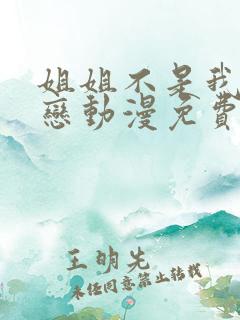 姐姐不是我
戀動漫免費
王明先
未经同意禁止转载